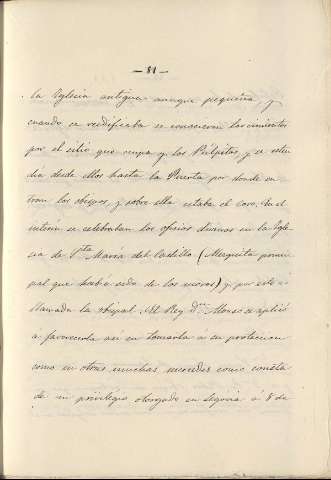 — 81 —
la Yglesia antigua aunque pequeña, y
cuando se reedificaba se conocieron los cimientos
por el sitio que ocupa y los Púlpitos, y se esten
dia desde ellos hasta la Puerta por donde en
tran los obispos, y sobre ella estaba el coro. En el
interin se celebraban los oficios divinos en la Ygle
sia de Sta Maria del Castillo (Mezquita princi
pal que habia sido de los moros) y por esto es
llamada la obispal. El Rey Dn Alonso se aplicó
á favorecerla asi en tomarla á su proteccion
como en otras muchas mercedes como consta
de un privilegio otorgado en Segovia á 8 de